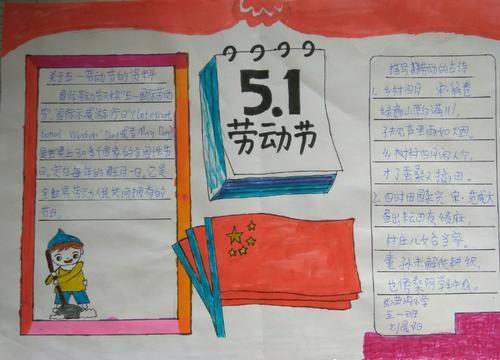 关于五一劳动节的资料
国际劳动节又称"五一国际劳动
节"、"国际示威游行日"(Internat
ional Workers' Day或者May Day)
是世界上80多个国家的全国性节
日。定在每年的五月一日。它是
全世界劳动人民共同拥有的
节日。
5.1
劳动节
描写劳动的古诗
1. 乡村四月 宋·翁卷
绿遍山原白满川,
子规声里雨如烟。
乡村四月闲人少,
才了蚕桑又插田。
2. 四时田园杂兴 宋·范成大
昼出耘田夜绩麻,
村庄儿女各当家。
童孙未解供耕织,
也傍桑阴学种瓜。
小学
五一班